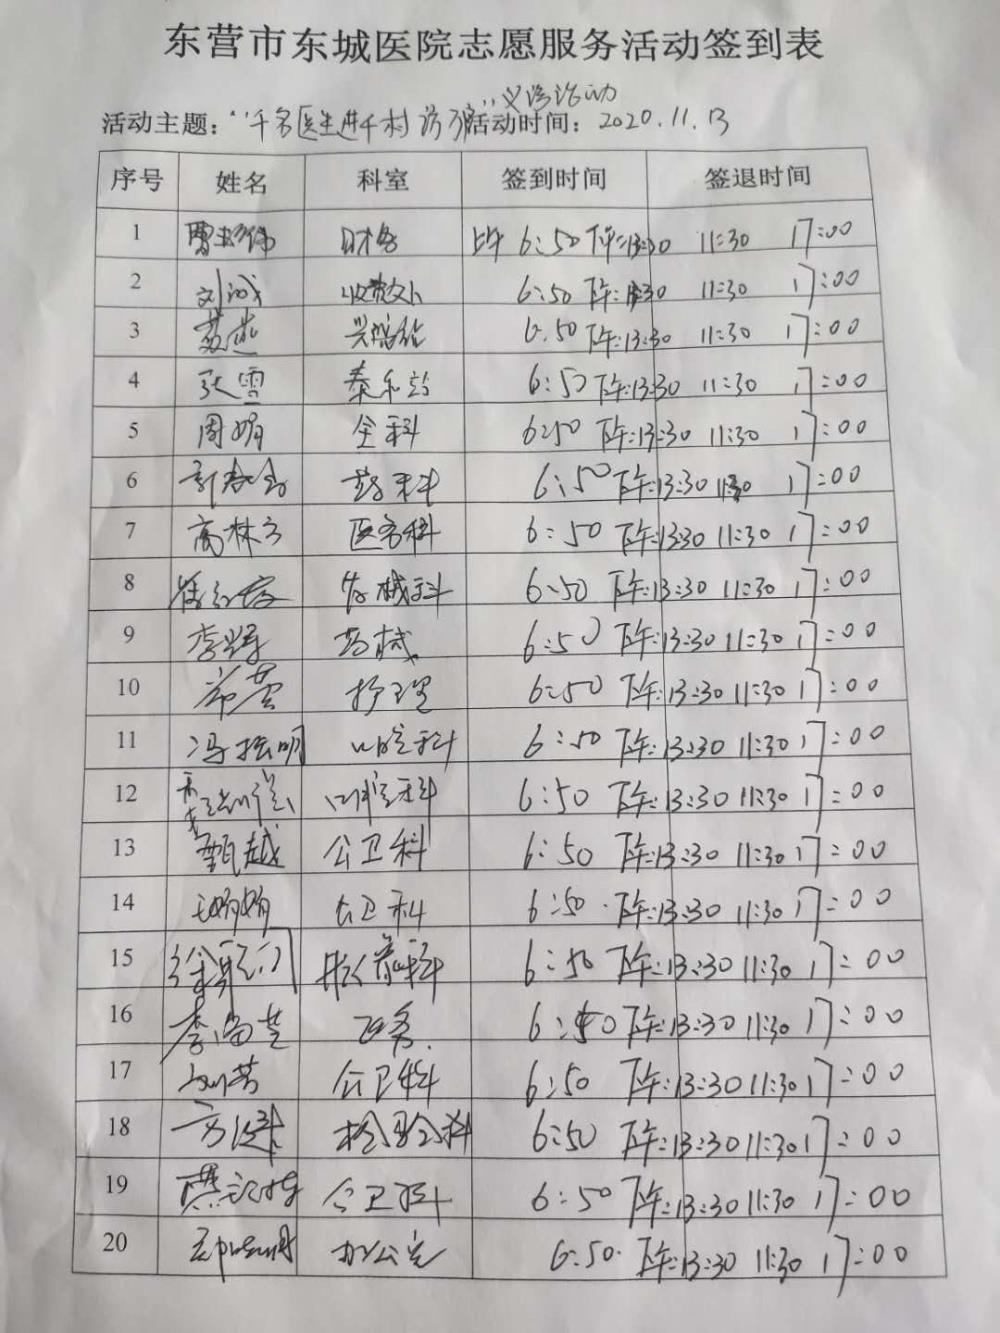 东营市东城医院志愿服务活动签到表
义诊活动
活动主题：“千名医生进千村 活动时间：2020.11.13
序号 姓名 科室 签到时间 签退时间
1 财务 上午 6:50 下午:13:30 11:30 17:00
2 刘诚 收费处 6:50 下午: 11:30 17:00
3 苏燕 6:50 下午:13:30 11:30 17:00
4 张雪 6:50 下午:13:30 11:30 17:00
5 周娟 全科 6:50 下午:13:30 11:30 17:00
6 药科 6:50 下午:13:30 11:30 17:00
7 高林方 医务科 6:50 下午:13:30 11:30 17:00
8 药械科 6:50 下午:13:30 11:30 17:00
9 药械 6:50 下午:13:30 11:30 17:00
10 护理 6:50 下午:13:30 11:30 17:00
11 口腔科 6:50 下午:13:30 11:30 17:00
12 口腔科 6:50 下午:13:30 11:30 17:00
13 甄越 公卫科 6:50 下午:13:30 11:30 17:00
14 公卫科 6:50 下午:13:30 11:30 17:00
15 6:50 下午:13:30 11:30 17:00
16 医务 6:50 下午:13:30 11:30 17:00
17 刘芳 公卫科 6:50 下午:13:30 11:30 17:00
18 检验科 6:50 下午:13:30 11:30 17:00
19 公卫科 6:50 下午:13:30 11:30 17:00
20 办公室 6:50 下午:13:30 11:30 17:00